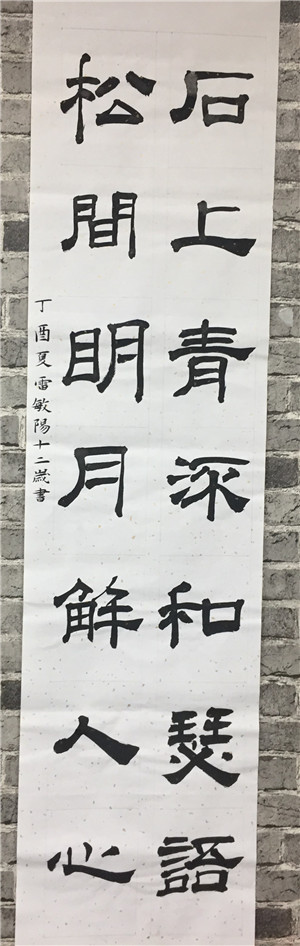 石上青流和瑟語
松間明月解人心
丁酉夏雷敏陽十二歲書